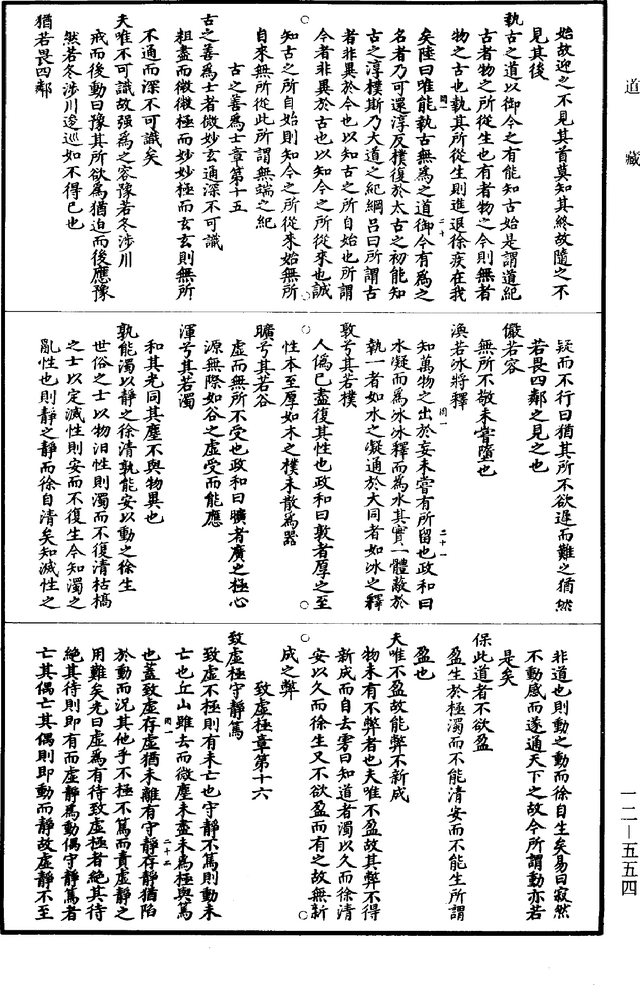 道藏
始故迎之不見其首莫知其終故隨之不
見其後
執古之道以御今之有能知古始是謂道紀
古者物之所從生也有者物之今則無者
物之古也執其所從生則進退徐疾在我
矣陸曰唯能執古無為之道御今有為之
名者乃可還淳反樸復於太古之初能知
古之淳樸斯乃大道之紀綱呂曰所謂古
者非異於今也以知古之所自始也所謂
今者非異於古也以知今之所從來也誠
知古之所自始則知今之所從來始無所
自來無所從此所謂無端之紀
古之善為士章第十五
古之善為士者微妙玄通深不可識
粗盡而微微極而妙妙極而玄玄則無所
不通而深不可識矣
夫唯不可識故强為之容豫若冬涉川
戒而後動曰豫其所欲為猶迫而後應豫
然若冬涉川逡巡如不得已也
猶若畏四鄰
疑而不行曰猶其所不欲遲而難之猶然
若畏四鄰之見之也
儼若容
無所不敬未嘗墮也
渙若冰將釋
知萬物之出於妄未嘗有所留也政和曰
水凝而為冰冰釋而為水其實一體蔽於
執一者如水之凝通於大同者如冰之釋
敦兮其若樸
人偽已盡復其性也政和曰敦者厚之至
性本至厚如木之樸未散為器
曠兮其若谷
虛而無所不受也政和曰曠者廣之極心
源無際如谷之虛受而能應
渾兮其若濁
和其光同其塵不與物異也
孰能濁以靜之徐清孰能安以動之徐生
世俗之士以物汨性則濁而不復清枯槁
之士以定滅性則安而不復生今知濁之
亂性也則靜之靜而徐自清矣知滅性之
非道也則動之動而徐自生矣易曰寂然
不動感而遂通天下之故今所謂動亦若
是矣
保此道者不欲盈
盈生於極濁而不能清安而不能生所謂
盈也
夫唯不盈故能弊不新成
物未有不弊者也夫唯不盈故其弊不得
新成而自去雱曰知道者濁以久而徐清
安以久而徐生又不欲盈而有之故無新
成之弊
致虛極章第十六
致虛極守靜篤
致虛不極則有未亡也守靜不篤則動未
亡也丘山雖去而微塵未盡未為極與篤
也蓋致虛存虛猶未離有守靜存靜猶陷
於動而況其他乎不極不篤而責虛靜之
用難矣光曰虛為有待致虛極者絕其待
絕其待則即有而虛靜為動偶守靜篤者
亡其偶亡其偶則即動而靜故虛靜不至
一二—五五四